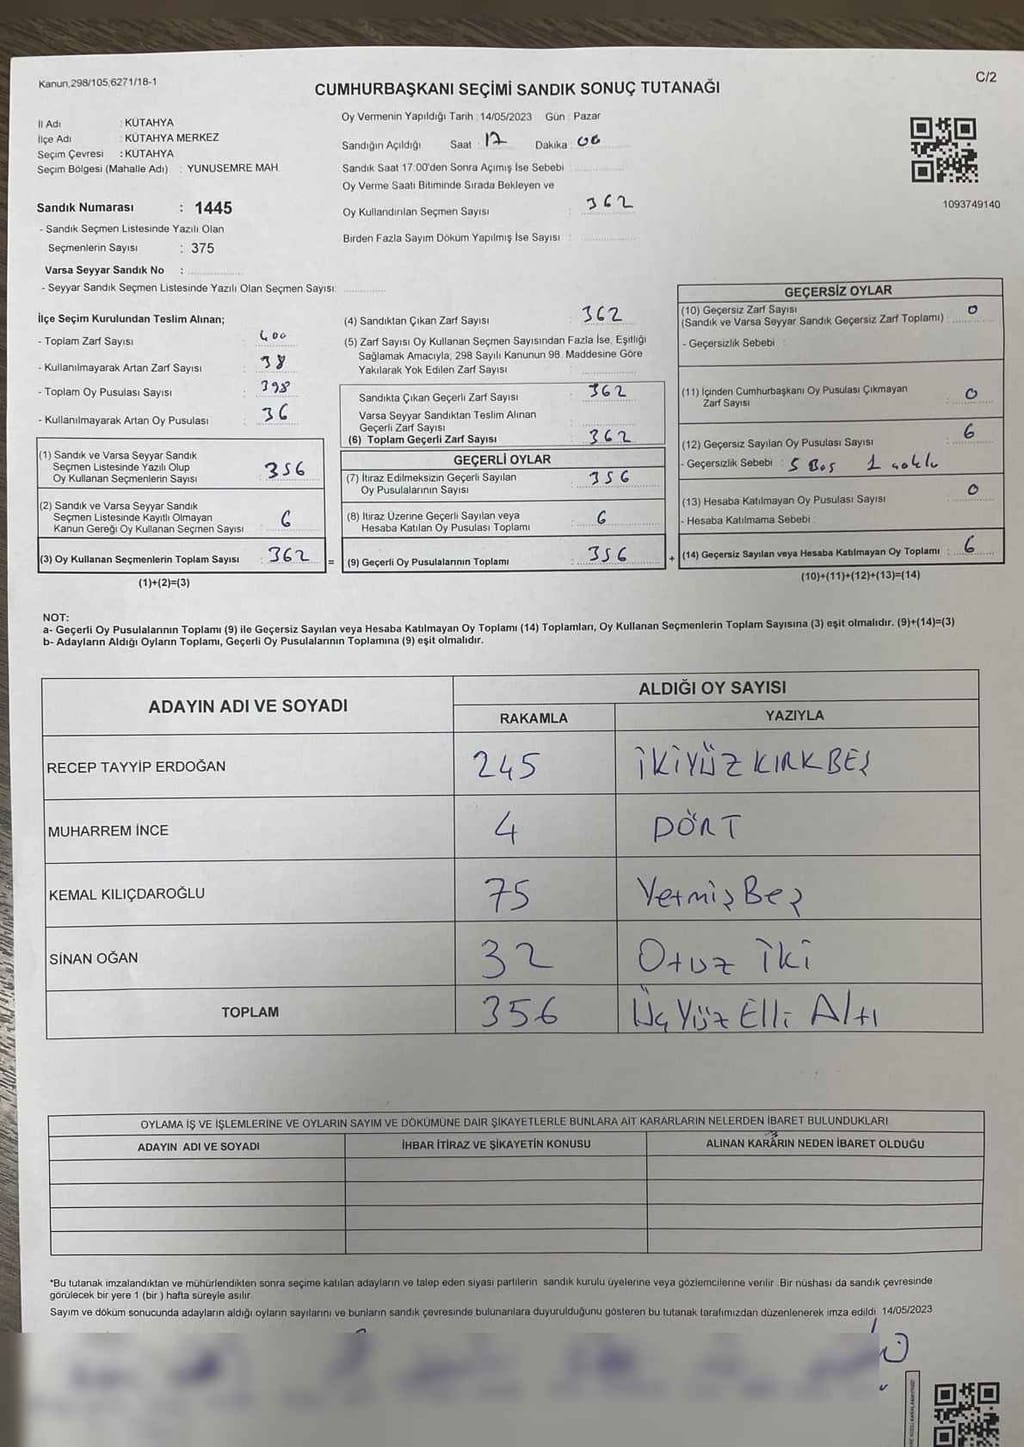 Kanun,298/105,6271/18-1
C/2
CUMHURBAŞKANI SEÇİMİ SANDIK SONUÇ TUTANAĞI
İl Adı : KÜTAHYA
İlçe Adı : KÜTAHYA MERKEZ
Seçim Çevresi : KÜTAHYA
Seçim Bölgesi (Mahalle Adı) : YUNUSEMRE MAH.
Sandık Numarası : 1445
- Sandık Seçmen Listesinde Yazılı Olan
Seçmenlerin Sayısı : 375
Varsa Seyyar Sandık No :
- Seyyar Sandık Seçmen Listesinde Yazılı Olan Seçmen Sayısı:
Oy Vermenin Yapıldığı Tarih : 14/05/2023 Gün : Pazar
Sandığın Açıldığı Saat : 17 Dakika : 06
Sandık Saat 17.00'den Sonra Açımış İse Sebebi :
Oy Verme Saati Bitiminde Sırada Bekleyen ve
Oy Kullandırılan Seçmen Sayısı : 362
Birden Fazla Sayım Döküm Yapılmış İse Sayısı :
1093749140
İlçe Seçim Kurulundan Teslim Alınan;
- Toplam Zarf Sayısı : 400
- Kullanılmayarak Artan Zarf Sayısı : 38
- Toplam Oy Pusulası Sayısı : 398
- Kullanılmayarak Artan Oy Pusulası : 36
(1) Sandık ve Varsa Seyyar Sandık
Seçmen Listesinde Yazılı Olup
Oy Kullanan Seçmenlerin Sayısı : 356
(2) Sandık ve Varsa Seyyar Sandık
Seçmen Listesinde Kayıtlı Olmayan
Kanun Gereği Oy Kullanan Seçmen Sayısı : 6
(3) Oy Kullanan Seçmenlerin Toplam Sayısı : 362
(1)+(2)=(3)
(4) Sandıktan Çıkan Zarf Sayısı : 362
(5) Zarf Sayısı Oy Kullanan Seçmen Sayısından Fazla İse, Eşitliği
Sağlamak Amacıyla, 298 Sayılı Kanunun 98. Maddesine Göre
Yakılarak Yok Edilen Zarf Sayısı :
Sandıkta Çıkan Geçerli Zarf Sayısı : 362
Varsa Seyyar Sandıktan Teslim Alınan
Geçerli Zarf Sayısı :
(6) Toplam Geçerli Zarf Sayısı : 362
GEÇERLİ OYLAR
(7) İtiraz Edilmeksizin Geçerli Sayılan
Oy Pusulalarının Sayısı : 356
(8) İtiraz Üzerine Geçerli Sayılan veya
Hesaba Katılan Oy Pusulası Toplamı : 6
= (9) Geçerli Oy Pusulalarının Toplamı : 356
GEÇERSİZ OYLAR
(10) Geçersiz Zarf Sayısı
(Sandık ve Varsa Seyyar Sandık Geçersiz Zarf Toplamı) : 0
- Geçersizlik Sebebi :
(11) İçinden Cumhurbaşkanı Oy Pusulası Çıkmayan
Zarf Sayısı : 0
(12) Geçersiz Sayılan Oy Pusulası Sayısı : 6
- Geçersizlik Sebebi : 5 Boş 1
(13) Hesaba Katılmayan Oy Pusulası Sayısı : 0
- Hesaba Katılmama Sebebi :
+ (14) Geçersiz Sayılan veya Hesaba Katılmayan Oy Toplamı : 6
(10)+(11)+(12)+(13)=(14)
NOT:
a- Geçerli Oy Pusulalarının Toplamı (9) ile Geçersiz Sayılan veya Hesaba Katılmayan Oy Toplamı (14) Toplamları, Oy Kullanan Seçmenlerin Toplam Sayısına (3) eşit olmalıdır. (9)+(14)=(3)
b- Adayların Aldığı Oyların Toplamı, Geçerli Oy Pusulalarının Toplamına (9) eşit olmalıdır.
ADAYIN ADI VE SOYADI
ALDIĞI OY SAYISI
RAKAMLA YAZIYLA
RECEP TAYYİP ERDOĞAN 245 İKİYÜZ KIRKBEŞ
MUHARREM İNCE 4 DÖRT
KEMAL KILIÇDAROĞLU 75 Yetmiş Beş
SİNAN OĞAN 32 Otuz İki
TOPLAM 356 Üç Yüz Elli Altı
OYLAMA İŞ VE İŞLEMLERİNE VE OYLARIN SAYIM VE DÖKÜMÜNE DAİR ŞİKAYETLERLE BUNLARA AİT KARARLARIN NELERDEN İBARET BULUNDUKLARI
ADAYIN ADI VE SOYADI İHBAR İTİRAZ VE ŞİKAYETİN KONUSU ALINAN KARARIN NEDEN İBARET OLDUĞU
*Bu tutanak imzalandıktan ve mühürlendikten sonra seçime katılan adayların ve talep eden siyasi partilerin sandık kurulu üyelerine veya gözlemcilerine verilir. Bir nüshası da sandık çevresinde
görülecek bir yere 1 (bir ) hafta süreyle asılır.
Sayım ve döküm sonucunda adayların aldığı oyların sayılarını ve bunların sandık çevresinde bulunanlara duyurulduğunu gösteren bu tutanak tarafımızdan düzenlenerek imza edildi. 14/05/2023